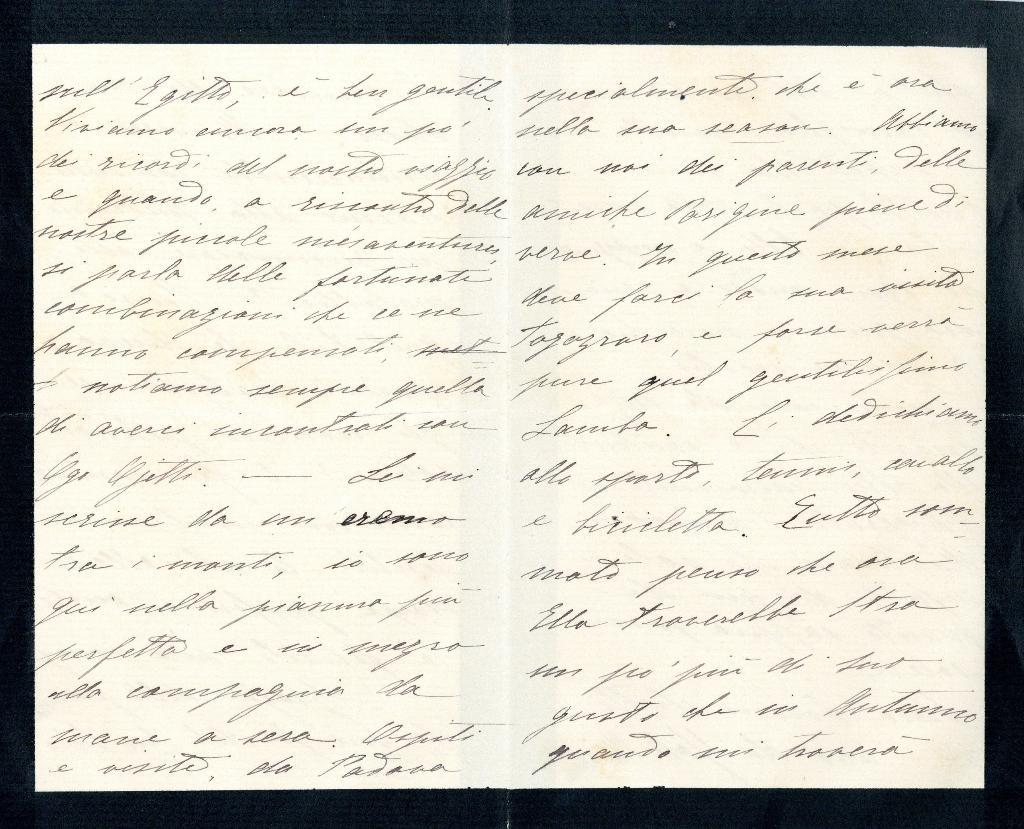 sull' Egitto, è ben gentile.
Viviamo ancora un po'
dei ricordi del nostro viaggio
e quando, a riscontro delle
nostre piccole mésaventures,
si parla delle fortunate
combinazioni che ce ne
hanno compensati,
notiamo sempre quella
di averci incontrati con
Ugo Ojetti. — Lei mi
scrisse da un eremo
tra i monti, io sono
qui nella pianura più
perfetta e in mezzo
alla compagnia da
mane a sera. Ospiti
e visite, da Padova
specialmente che è ora
nella sua season. Abbiamo
con noi dei parenti, delle
amiche Parigine piene di
verve. In questo mese
deve farci la sua visita
Fogazzaro, e forse verrà
pure quel gentilissimo
Lamba. Ci dedichiamo
allo sport, tennis, cavallo
e bicicletta. Tutto som-
mato penso che ora
Ella troverebbe Stra
un po' più di suo
gusto che in Autunno
quando mi troverà